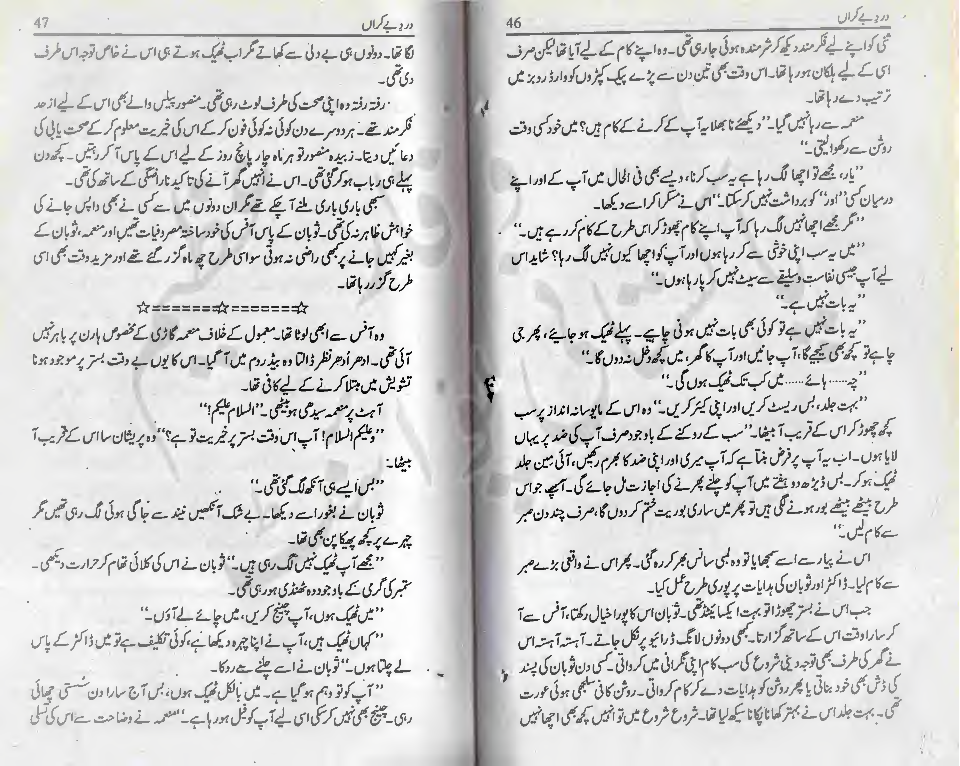 دردِ بے کراں
46
ثنی کو اپنے لیے فکر مند دیکھ کر شرمندہ ہوئی جا رہی تھی۔ وہ اپنے کام کے لیے آیا تھا لیکن صرف
اسی کے لیے ہلکان ہو رہا تھا۔ اس وقت بھی تین دن سے پڑے پیک کپڑوں کو وارڈ روبز میں
ترتیب دے رہا تھا۔
منعمہ سے رہا نہیں گیا۔ ”دیکھئے نا بھلا یہ آپ کے کرنے کے کام ہیں؟ میں خود کسی وقت
روشن سے رکھوا لیتی۔“
”یار، مجھے تو اچھا لگ رہا ہے یہ سب کرنا، ویسے بھی فی الحال میں آپ کے اور اپنے
درمیان کسی ”اور“ کو برداشت نہیں کر سکتا۔“ اس نے مسکرا کر اسے دیکھا۔
”مگر مجھے اچھا نہیں لگ رہا کہ آپ اپنے کام چھوڑ کر اس طرح کے کام کر رہے ہیں۔“
”میں یہ سب اپنی خوشی سے کر رہا ہوں اور آپ کو اچھا کیوں نہیں لگ رہا؟ شاید اس
لیے آپ جیسی نفاست و سلیقے سے سیٹ نہیں کر پا رہا ہوں۔“
”یہ بات نہیں ہے۔“
”یہ بات نہیں ہے تو کوئی بھی بات نہیں ہونی چاہیے۔ پہلے ٹھیک ہو جائیے، پھر جی
چاہے تو کچھ بھی کیجیے گا، آپ جانیں اور آپ کا گھر، میں کچھ دخل نہ دوں گا۔“
”چہ...... ہائے...... میں کب تک ٹھیک ہوں گی۔“
”بہت جلد، بس ریسٹ کریں اور اپنی کیئر کریں۔“ وہ اس کے مایوسانہ انداز پر سب
کچھ چھوڑ کر اس کے قریب آ بیٹھا۔ ”سب کے روکنے کے باوجود صرف آپ کی ضد پر یہاں
لایا ہوں۔ اب یہ آپ پر فرض بنتا ہے کہ آپ میری اور اپنی ضد کا بھرم رکھیں، آئی مین جلد
ٹھیک ہو کر۔ بس ڈیڑھ دو ہفتے میں آپ کو چلنے پھرنے کی اجازت مل جائے گی۔ آپ جو اس
طرح بیٹھے بیٹھے بور ہونے لگی ہیں تو پھر میں ساری بوریت ختم کر دوں گا، صرف چند دن صبر
سے کام لیں۔“
اس نے پیار سے اسے سمجھایا تو وہ لمبی سانس بھر کر رہ گئی۔ پھر اس نے واقعی بڑے صبر
سے کام لیا۔ ڈاکٹر اور ثوبان کی ہدایات پر پوری طرح عمل کیا۔
جب اس نے بستر چھوڑا تو بہت ایکسائیٹڈ تھی۔ ثوبان اس کا پورا خیال رکھتا، آفس سے آ
کر سارا وقت اس کے ساتھ گزارتا۔ کبھی دونوں لانگ ڈرائیو پر نکل جاتے۔ آہستہ آہستہ اس
نے گھر کی طرف بھی توجہ دینی شروع کی سب کام اپنی نگرانی میں کرواتی۔ کسی دن ثوبان کی پسند
کی ڈش بھی خود بناتی یا پھر روشن کو ہدایات دے کر کام کرواتی۔ روشن کافی سلجھی ہوئی عورت
تھی۔ بہت جلد اس نے بہتر کھانا پکانا سیکھ لیا تھا۔ شروع شروع میں تو انہیں کچھ بھی اچھا نہیں
دردِ بے کراں
47
لگا تھا۔ دونوں ہی بے دلی سے کھاتے مگر اب ٹھیک ہوتے ہی اس نے خاص توجہ اس طرف
دی تھی۔
رفتہ رفتہ وہ اپنی صحت کی طرف لوٹ رہی تھی۔ منصور پیلس والے بھی اس کے لیے از حد
فکر مند تھے۔ ہر دوسرے دن کوئی نہ کوئی فون کر کے اس کی خیریت معلوم کر کے صحت یابی کی
دعائیں دیتا۔ زبیدہ منصور تو ہر ماہ چار پانچ روز کے لیے اس کے پاس آ کر رہتیں۔ کچھ دن
پہلے ہی رباب ہو کر گئی تھی۔ اس نے انہیں گھر آنے کی تاکید ناراضگی کے ساتھ کی تھی۔
سبھی باری باری ملنے آ چکے تھے مگر ان دونوں میں سے کسی نے بھی واپس جانے کی
خواہش ظاہر نہ کی تھی۔ ثوبان کے پاس آفس کی خود ساختہ مصروفیات تھیں اور منعمہ، ثوبان کے
بغیر کہیں جانے پر بھی راضی نہ ہوئی سو اسی طرح چھ ماہ گزر گئے تھے اور مزید وقت بھی اسی
طرح گزر رہا تھا۔
☆=======☆=======☆
وہ آفس سے ابھی لوٹا تھا۔ معمول کے خلاف منعمہ گاڑی کے مخصوص ہارن پر باہر نہیں
آئی تھی۔ ادھر اُدھر نظر ڈالتا وہ بیڈ روم میں آ گیا۔ اس کا یوں بے وقت بستر پر موجود ہونا
تشویش میں مبتلا کرنے کے لیے کافی تھا۔
آہٹ پر منعمہ سیدھی ہو بیٹھی۔ ”السلام علیکم!“
”وعلیکم السلام! آپ اس وقت بستر پر خیریت تو ہے؟“ وہ پریشان سا اس کے قریب آ
بیٹھا۔
”بس ایسے ہی آنکھ لگ گئی تھی۔“
ثوبان نے بغور اسے دیکھا۔ بے شک آنکھیں نیند سے جاگی ہوئی لگ رہی تھیں مگر
چہرے پر کچھ پھیکا پن بھی تھا۔
”مجھے آپ ٹھیک نہیں لگ رہی ہیں۔“ ثوبان نے اس کی کلائی تھام کر حرارت دیکھی۔
ستمبر کی گرمی کے باوجود وہ ٹھنڈی ہو رہی تھی۔
”میں ٹھیک ہوں، آپ چینج کریں، میں چائے لے آؤں۔“
”کہاں ٹھیک ہیں، آپ نے اپنا چہرہ دیکھا ہے، کوئی تکلیف ہے تو میں ڈاکٹر کے پاس
لے چلتا ہوں۔“ ثوبان نے اسے چلنے سے روکا۔
”آپ کو تو وہم ہو گیا ہے۔ میں بالکل ٹھیک ہوں، بس آج سارا دن سستی چھائی
رہی۔ چینج بھی نہیں کر سکی اسی لیے آپ کو فیل ہو رہا ہے۔“ منعمہ نے وضاحت سے اس کی تسلی